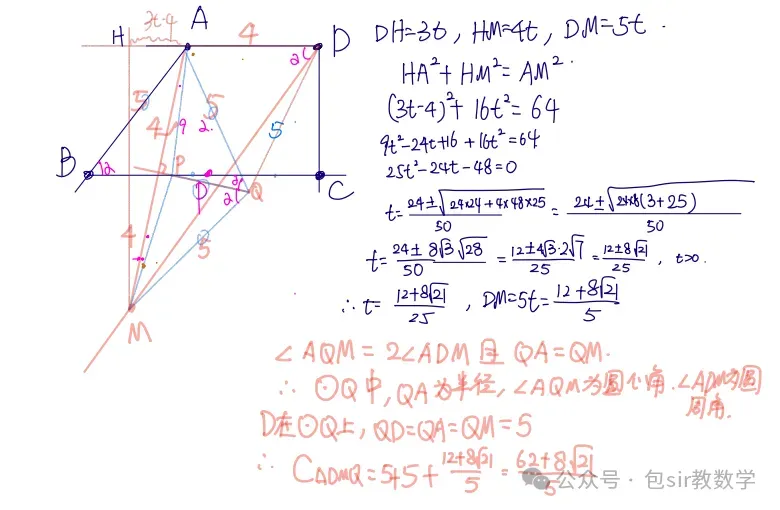 3t-4
H
A
4
D
2α
5
4
5
5
9
2
B
α
P
P
2α
2α
Q
C
4
5
M
DH=3t, HM=4t, DM=5t.
HA²+HM²=AM².
(3t-4)²+16t²=64
9t²-24t+16+16t²=64
25t²-24t-48=0
t=\frac{24±√(24×24+4×48×25)}{50}=\frac{24±√(24×8(3+25))}{50}
t=\frac{24±8√3√28}{50}=\frac{12±4√3·2√7}{25}=\frac{12±8√21}{25}, t>0.
∴t=\frac{12+8√21}{25}, DM=5t=\frac{12+8√21}{5}
∠AQM=2∠ADM且QA=QM.
∴⊙Q中,QA为半径,∠AQM为圆心角.∠ADM为圆
周角.
D在⊙Q上,QD=QA=QM=5
∴C_{ADMQ}=5+5+\frac{12+8√21}{5}=\frac{62+8√21}{5}
公众号·包sir教数学